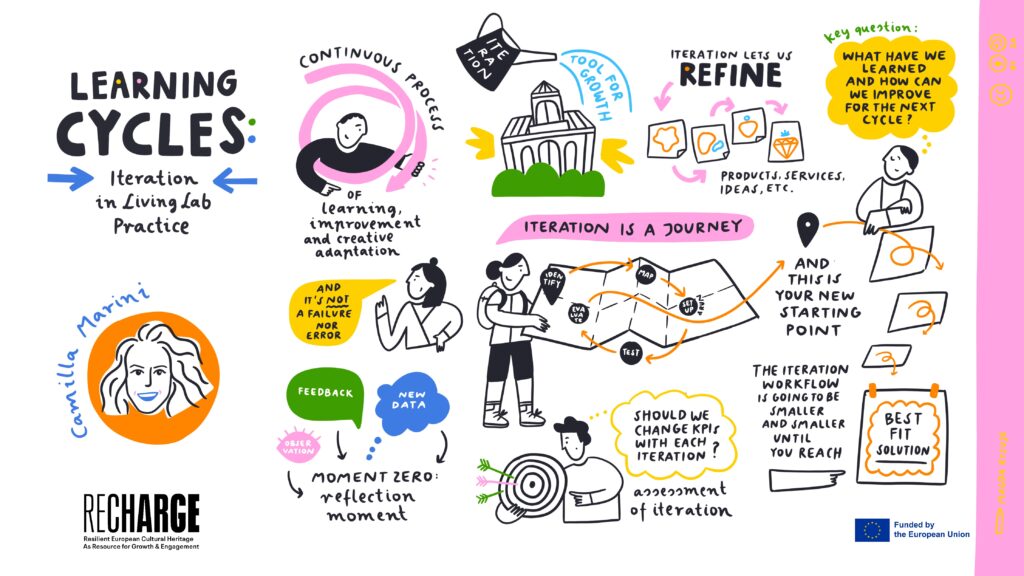 LEARNING
CYCLES:
Iteration
in Living Lab
Practice
Camilla Marini
RECHARGE
Resilient European Cultural Heritage
As Resource for Growth & Engagement
CONTINUOUS PROCESS
OF
learning,
improvement
and creative
adaptation
AND
IT'S NOT
A FAILURE
NOR
ERROR
FEEDBACK
NEW
DATA
OBSER
VATION
MOMENT ZERO:
reflection
moment
ITE
RA
TION
TOOL FOR
GROWTH
ITERATION LETS US
REFINE
PRODUCTS, SERVICES,
IDEAS, ETC.
key question:
WHAT HAVE WE
LEARNED
AND HOW CAN
WE IMPROVE
FOR THE NEXT
CYCLE?
ITERATION IS A JOURNEY
IDEN
TIFY
MAP
SET
UP
TEST
EVA
LUA
TE
AND
THIS IS
YOUR NEW
STARTING
POINT
SHOULD WE
CHANGE KPIS
WITH EACH
ITERATION?
assessment
of iteration
THE ITERATION
WORKFLOW
IS GOING TO BE
SMALLER
AND SMALLER
UNTIL
YOU REACH
BEST
FIT
SOLUTION
Funded by
the European Union